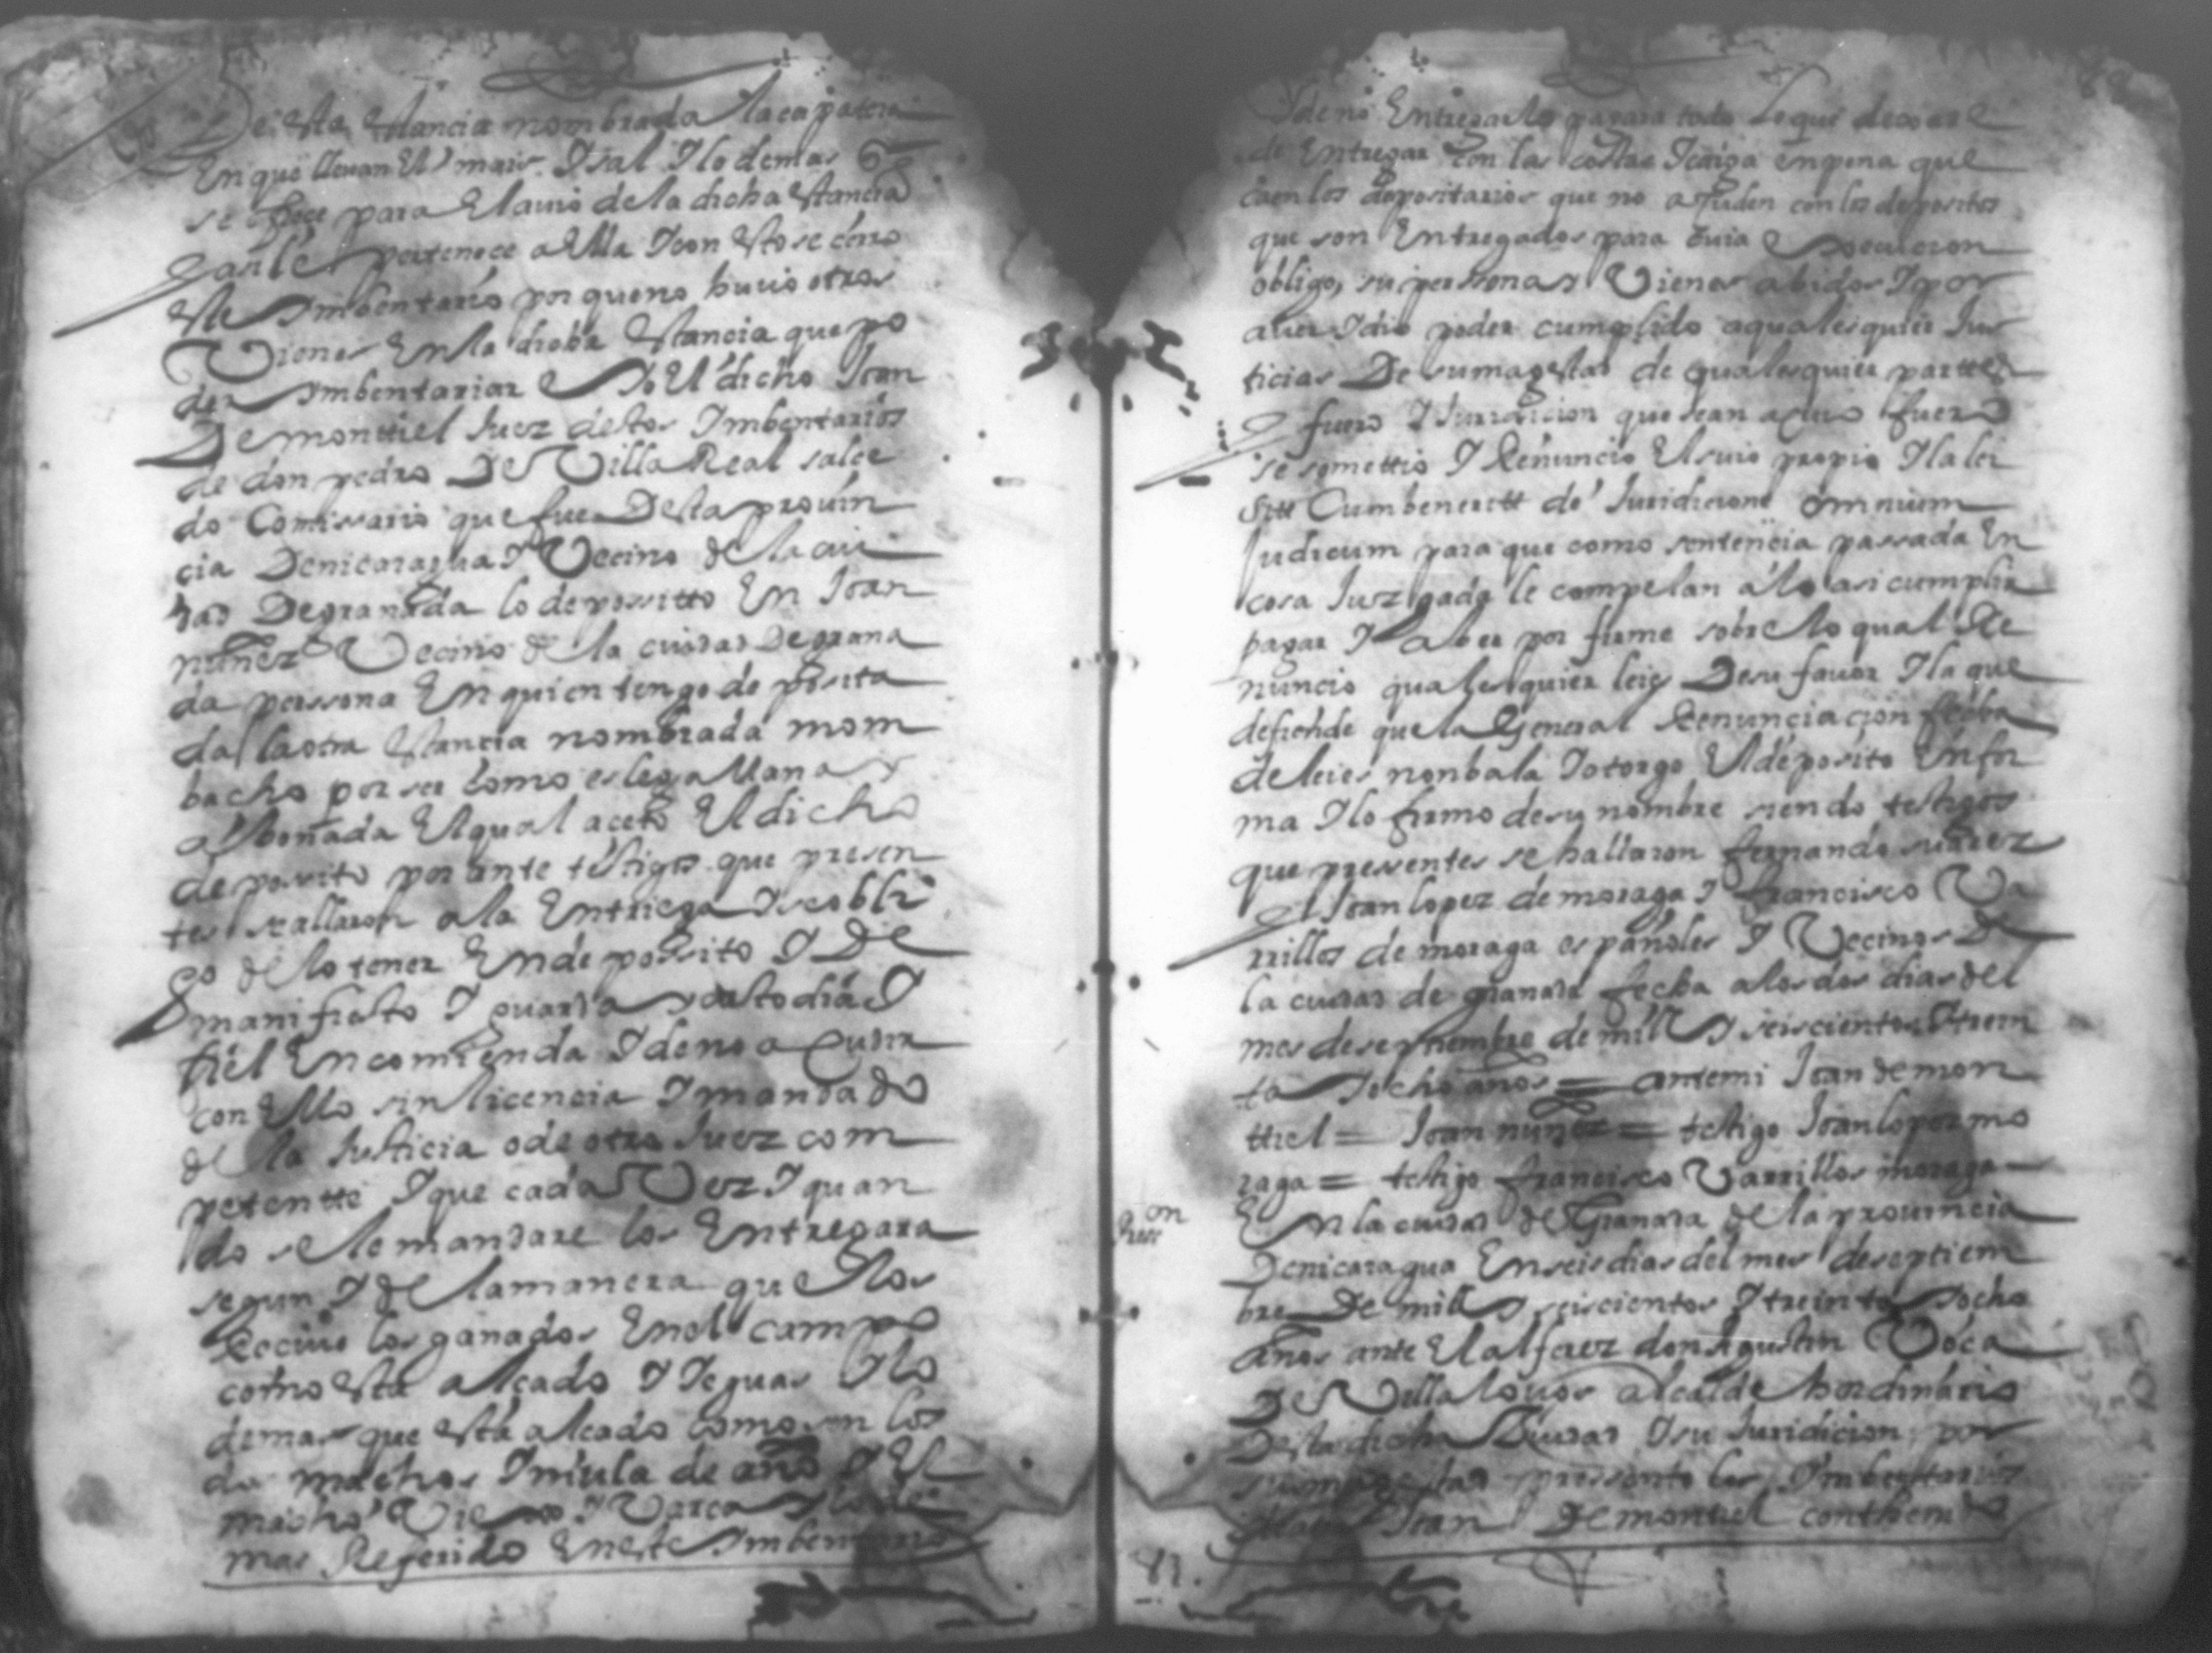 De esta estancia nombrada la çapatera
En que lleuan El mais Y sal Y lo demas
se ofreçe para El auio de la dicha estancia
pertenece a Ella Y con esto se cerro
este Imbentario por que no huuo otros
Vienes En la dicha estancia que po
der imbentariar E Yo El dicho Joan
De monttiel Juez destos Imbentarios
de don pedro De Villa Real salce
do Comissario que fue Desta provin
cia De nicaragua Y Vecino de la ciu
dad De granada lo depossitto En Joan
nuñez Vecino de la ciudad De grana
da perssona En quien tengo deposita
da la otra estancia nombrada mom
bacho por ser como es lega llana y
abonada El qual aceto El dicho
deposito por ante testigos que presen
tes se allaron a la Entriega Y se obli
go de lo tener En depossito Y De
manifiesto Y guarda y custodia Y
fiel Encomienda Y de no acudir
con Ello sin licencia Y mandado
de la Justicia o de otro Juez com
petentte Y que cada Vez Y quan
do se le mandare los Entregara
segun Y de la manera que los
Reciuio los ganados En el campo
como esta alçado Y Yeguas Y lo
demas que esta alçado como son los
dos machos Y mula de año Y El
macho Viejo Y Varca y lo de
mas Referido En este Imbentario
Y de no Entregarlo pagara todo Lo que dexare
de Entregar con las costas Y caiga en pena que
caen los depositarios que no acuden con los depositos
que son Entregados para cuia Execucion
obligo, su perssona y Vienes abidos Y por
auer Y dio poder cumplido a qualesquier Jus
ticias De su magestad de qualesquier parttes
fuero Y Jurisdicion que sean a cuio fuero
se somettio Y Renuncio El suio propio Y la lei
sitt Cumbeneritt de Juridicione omnium
Judicum para que como sentencia passada En
cosa Juzgada le compelan a lo asi cumplir
pagar Y aber por firme sobre lo qual Re
nuncio qualesquier leies De su fauor Y la que
defiende que la General Renunciacion fecha
de leies non bala Y otorgo El deposito En for
ma Y lo firmo de su nombre siendo testigos
que presentes se hallaron fernando suarez
Joan lopez de moraga Y francisco Va
rrillos de moraga españoles Y Vecinos De
la ciudad de granada fecha a los dos dias del
mes de septiembre de mill Y seiscientos Y trein
ta Y ocho años = ante mi Joan de mon
ttiel = Joan nuñez = testigo Joan lopez mo
raga = testigo francisco Varrillos moraga
En la ciudad de Granada de la prouincia
De nicaragua En seis dias del mes de septiem
bre De mill Y seiscientos Y treinta Y ocho
años ante El alferez don Agustin Vaca
De Villalouos alcalde hordinario
Desta dicha Ciudad Y su Juridicion por
su magestad pressento los Imbentarios
Joan De montiel conthenido